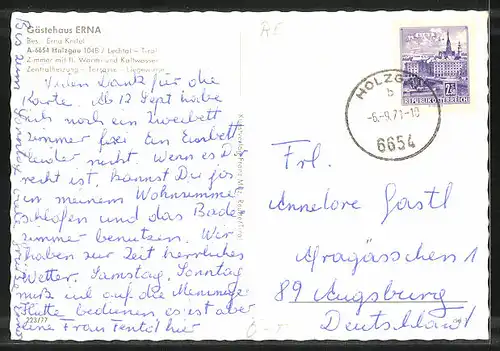 Gästehaus ERNA
Bes.: Erna Knitel
A-6654 Holzgau 104B / Lechtal – Tirol
Zimmer mit fl. Warm- und Kaltwasser
Zentralheizung – Terrasse – Liegewiese
Vielen Dank für die
Karte. Ab 12 Sept habe
ich noch ein Zweibett
zimmer frei Ein Einbett
leider nicht. Wenn es Dir
recht ist, kannst Du ja
in meinem Wohnzimmer
schlafen und das Bade
zimmer benutzen. Wir
haben zur Zeit herrliches
Wetter. Samstag, Sonntag
muß ich auf die Memminger
Hütte bedienen es ist aber
eine Frau hier
Bis zum
223/77
RE
Ö-T
HOLZGAU
b
-6.-9.71-18
6654
REPUBLIK ÖSTERREICH
Frl.
Annelore Gastl
Afragässchen 1
89 Augsburg
Deutschland